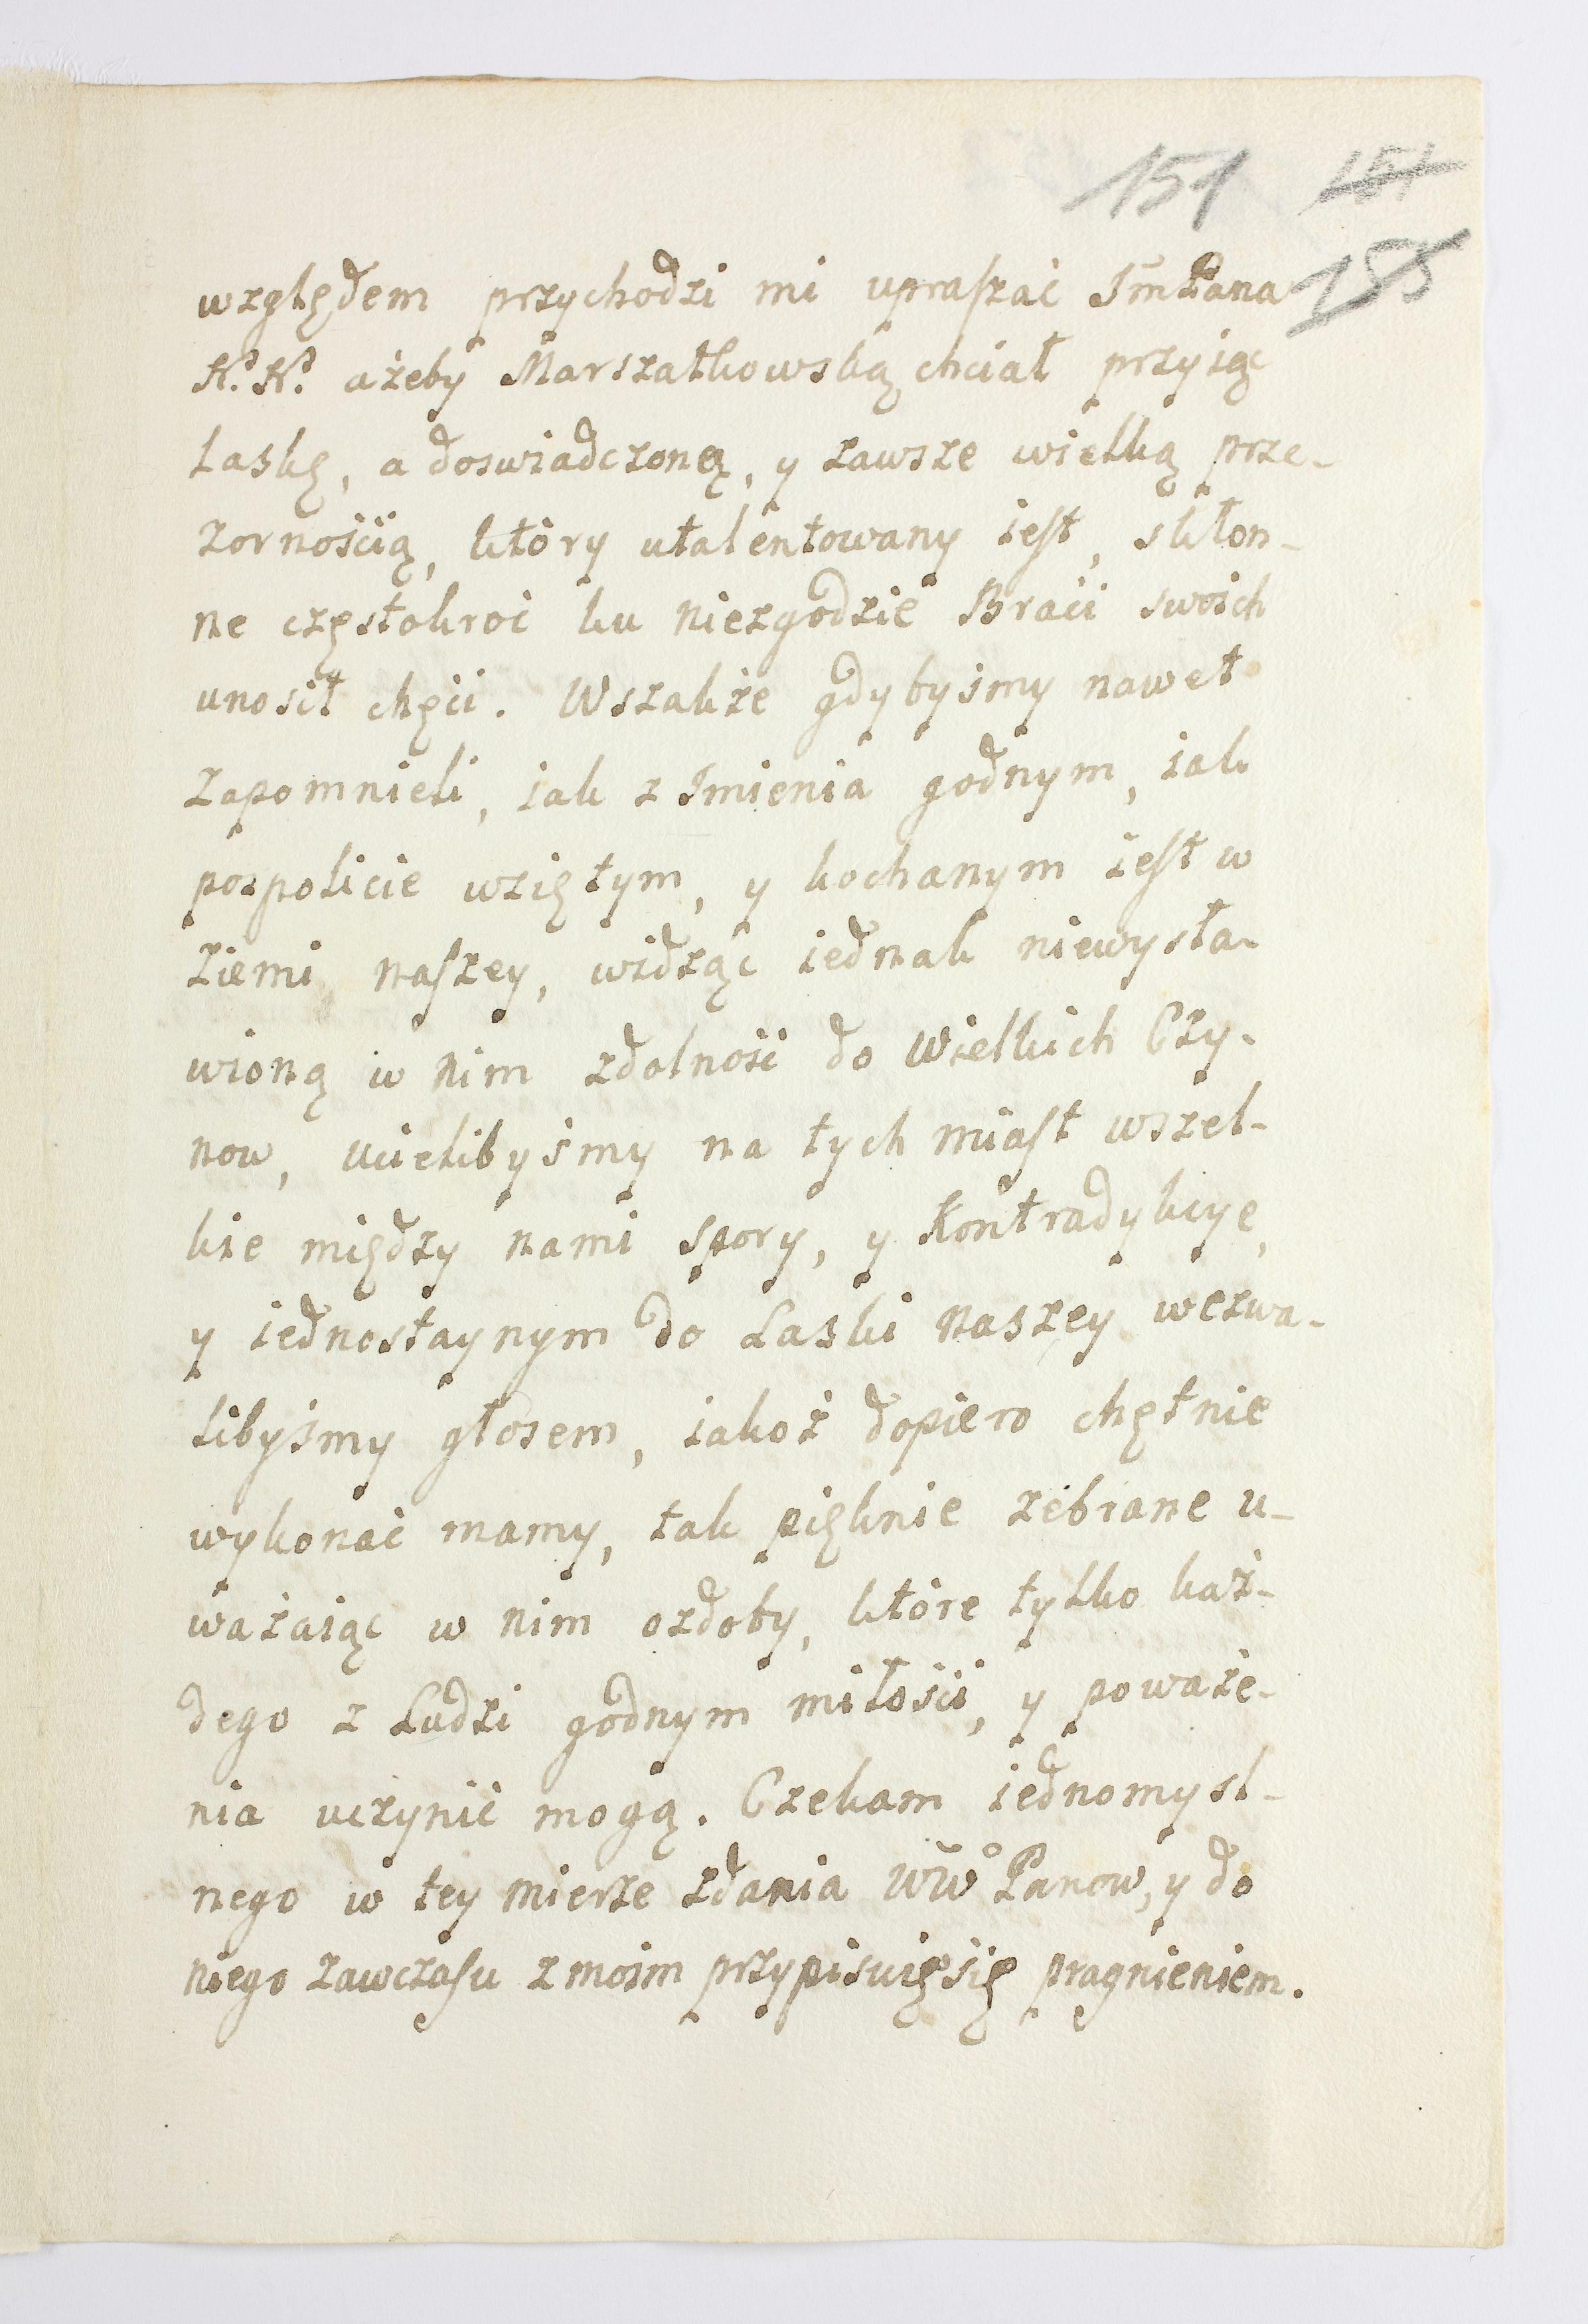 151 151
155
względem przychodzi mi upraſzać JmPana
K: K: ażeby Marszałkowską chciał przyiąc
Laskę, a doswiadczoną, y zawsze wielką prze-
zornością, który utalentowany iest, skłon-
ne częstokroć ku niezgodzie Braci swoich
unosił chęci. Wszakże gdybyśmy nawet
zapomnieli, iak z Imienia godnym, iak
pospolicie wziętym, y kochanym iest w
Ziemi naſzey, widząc iednak niewysła-
wioną w nim zdolność do wielkich Czy-
now, ucielibyśmy na tych miast wszel-
kie między nami spory, y Kontradykcye,
y iednostaynym do Laski naszey wezwa-
libyśmy głosem, iakoż dopiero chętnie
wykonać mamy, tak pięknie zebrane u-
ważaiąc w nim ozdoby, które tylko każ-
dego z Ludzi godnym miłości, y poważe-
nia uczynić mogą. Czekam iednomysl-
nego w tey mierze zdania WW Panow, y do
niego zawczaſu z moim przypisuię się pragnieniem.